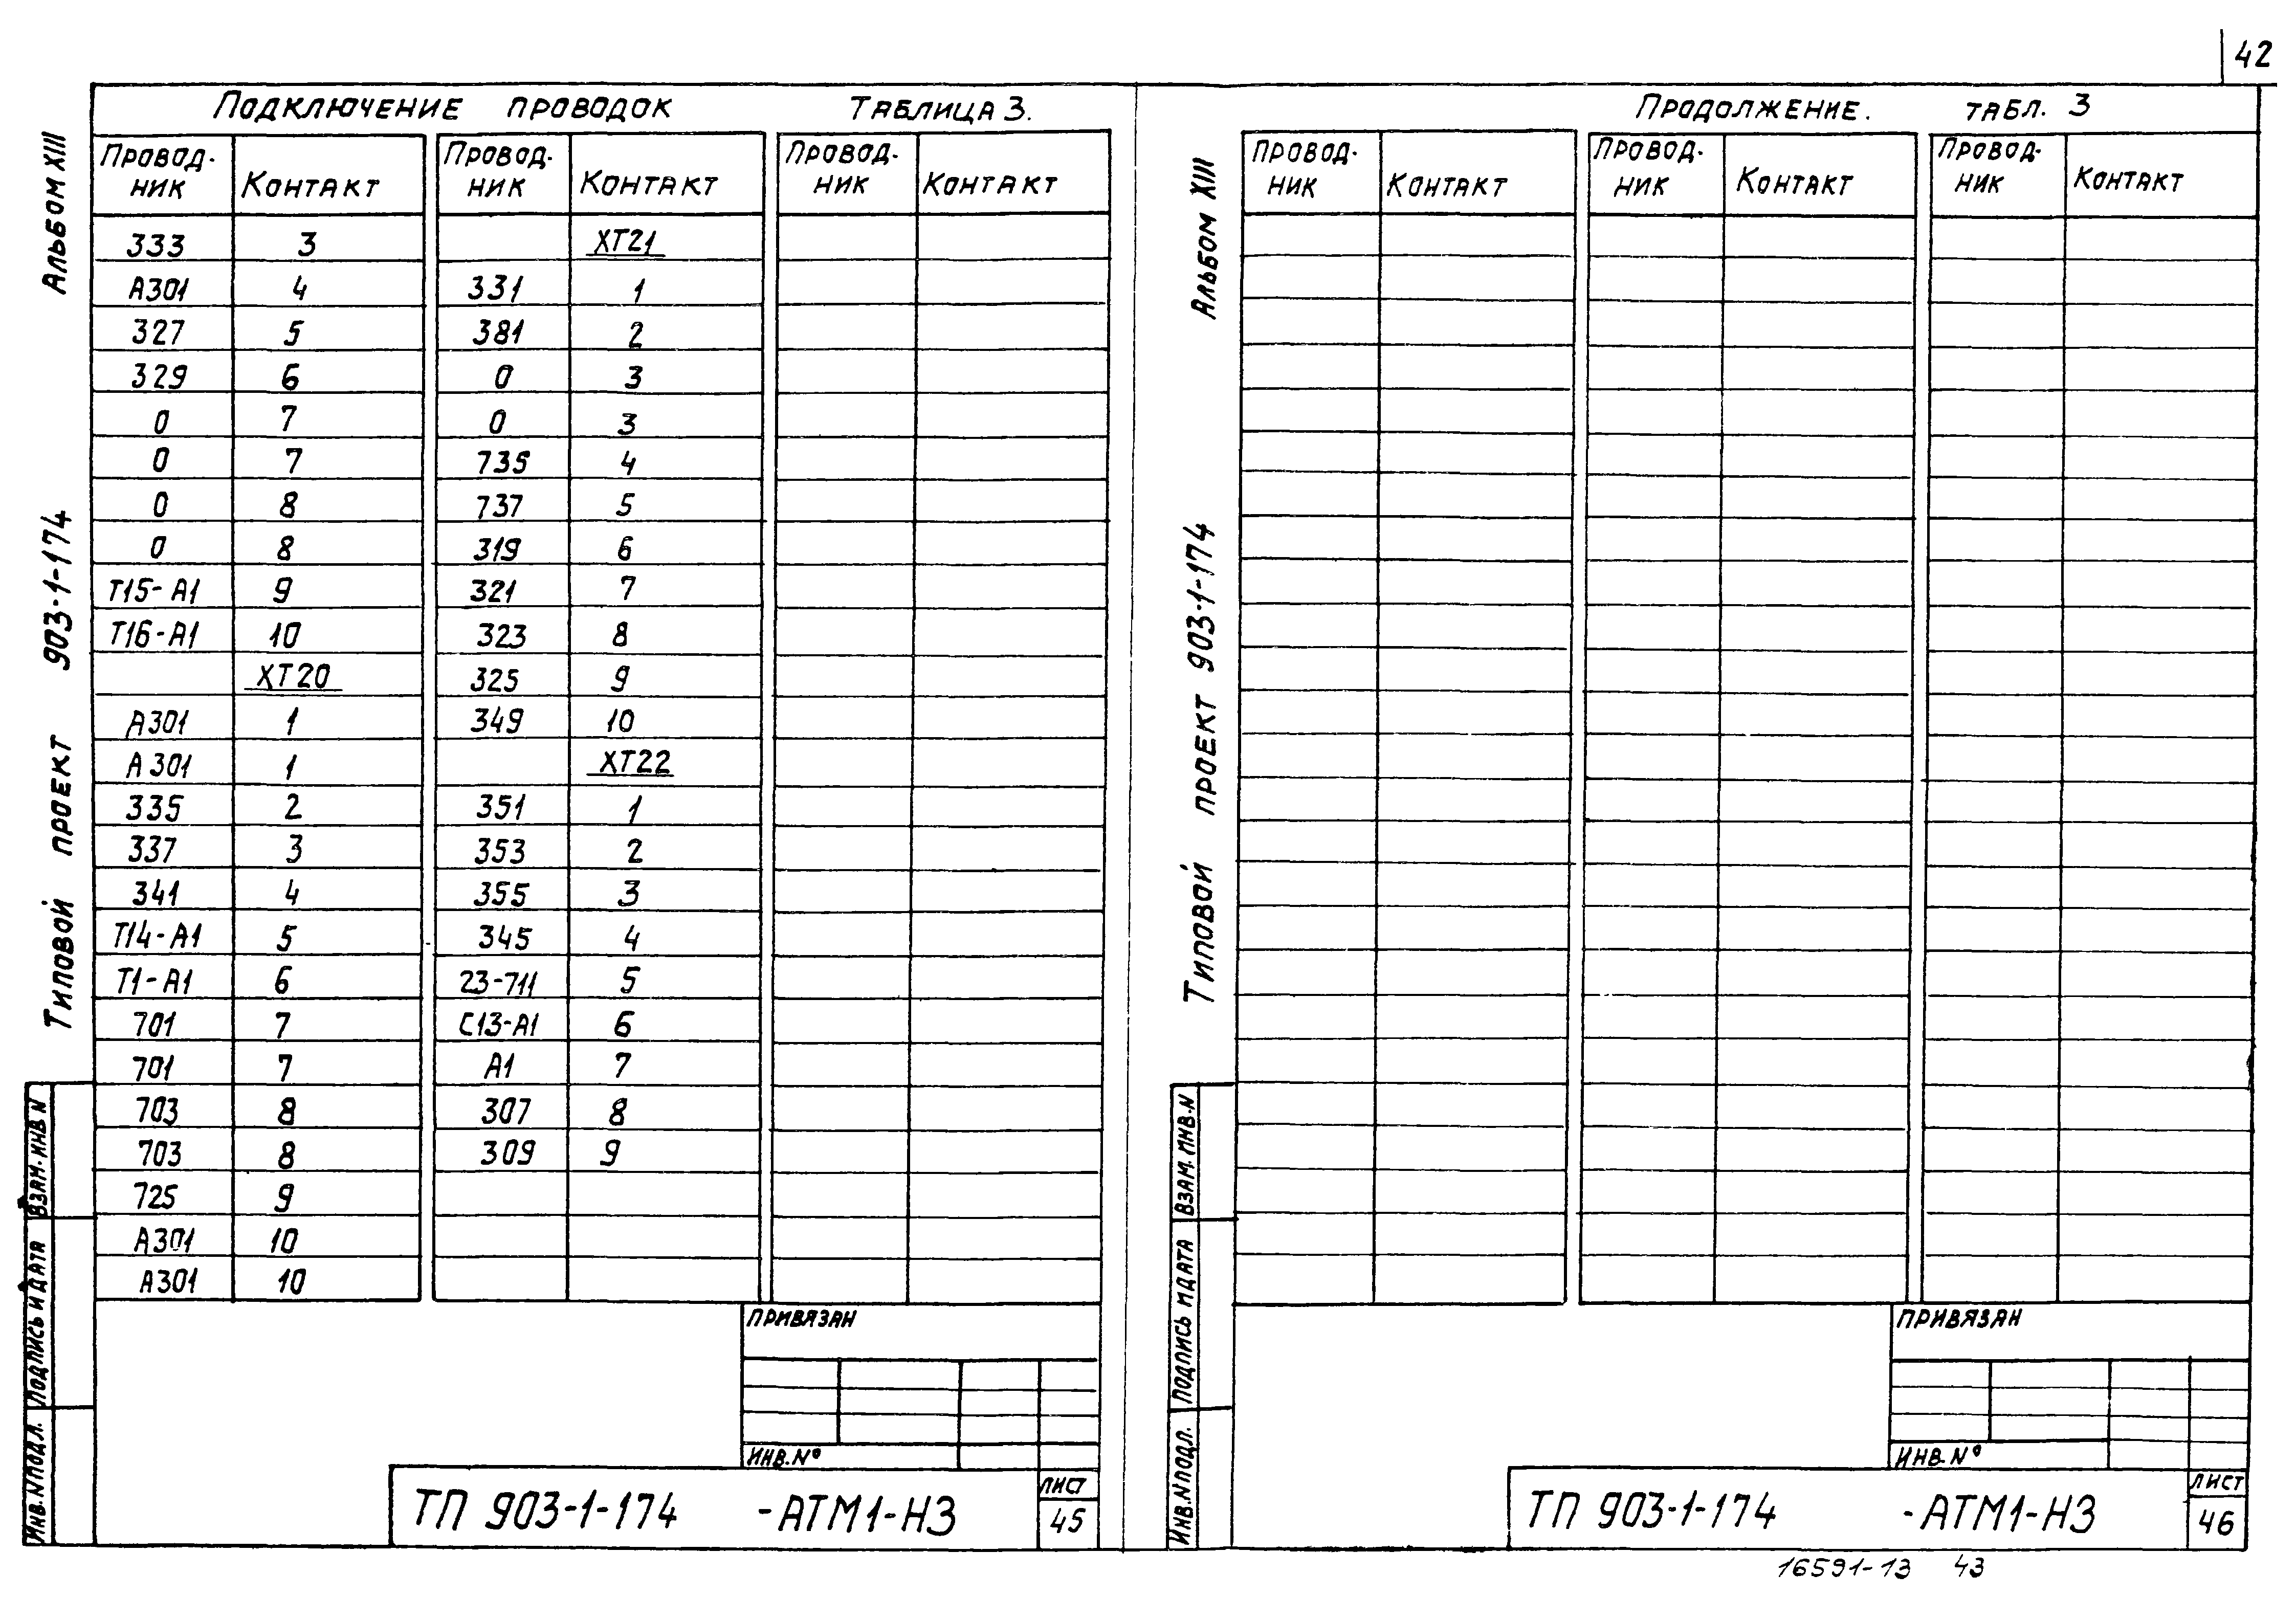 42
Подключение проводок Таблица 3.
Провод-ник Контакт Провод-ник Контакт Провод-ник Контакт
333 3 XT21
А301 4 331 1
327 5 381 2
329 6 0 3
0 7 0 3
0 7 735 4
0 8 737 5
0 8 319 6
Т15-А1 9 321 7
Т16-А1 10 323 8
XT20 325 9
А301 1 349 10
А301 1 XT22
335 2 351 1
337 3 353 2
341 4 355 3
Т14-А1 5 345 4
Т1-А1 6 23-711 5
701 7 С13-А1 6
701 7 А1 7
703 8 307 8
703 8 309 9
725 9
А301 10
А301 10
Привязан
Инв.№
ТП 903-1-174 -АТМ1-НЗ
Лист
45
Типовой проект 903-1-174 Альбом XIII
Инв.N подл. Подпись и дата Взам.инв N
Продолжение. табл. 3
Провод-ник Контакт Провод-ник Контакт Провод-ник Контакт
Привязан
Инв.№
ТП 903-1-174 -АТМ1-НЗ
Лист
46
Типовой проект 903-1-174 Альбом XIII
Инв.N подл. Подпись и дата Взам.инв.N
16591-13 43